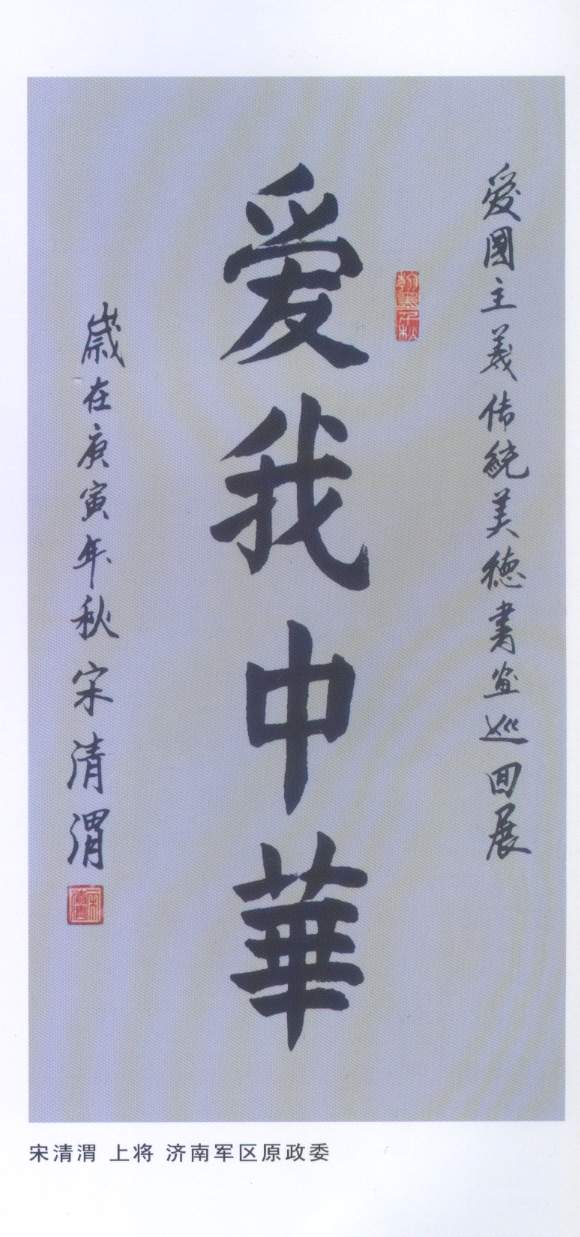 爱國主義传統美德書画巡回展
爱我中華
歲在庚寅年秋 宋清渭
宋清渭 上将 济南军区原政委